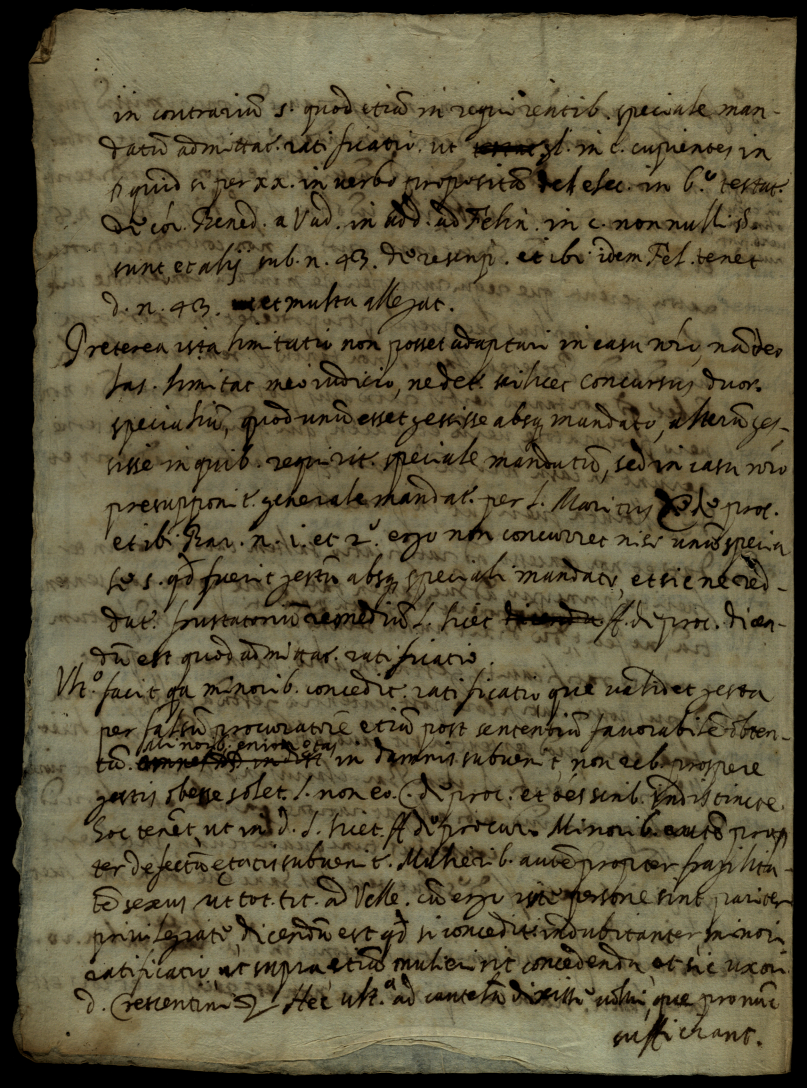 in contrariũ s. quod etiũ in requirẽtib. speciale man-
datũ admittat. ratificatio. ut gl. in c. cupientes in
§ quid si per xx. in verbo propositũ de elec. in 6.º testat.
Bened. a Vad. in add. ad Felin. in c. nonnulli §
sunt, et alij sub. n. 43. de rescrip. et ibi idem Fel. tenet
d. n. 43. et multa allegat.
Preterea ista limitatio non posset adaptari in casu nr̃o, nã deo
has. limitat meo iudicio, scilicet concursus duor.
specialiũ, quod unũ esset gessisse absq mandato, alterũ ges-
sisse in quib. requirit. speciale mandatũ, sed in casu nr̃o
presupponit. generale mandat. per l. Maritus C. de proc.
et ibi n. 1. et 2. ergo non concurret nisi unũ specia
le s. qd fuerit gestũ absq speciali mandato, et sic ne red-
dat. frustatoriũ remediũ l. hiec ff. de proc. dicen-
dũ est quod admittat. ratificatio.
Ult.º facit qa minorib. concedit. ratificatio, que validet gesta
per falsũ procuratorẽ etiũ post sententiũ favorabilẽ obten-
tũ.
in damnis subvenit, non prospere
gestis obesse solet. l. non eo. C. de proc. et indistincte
hoc tenet, ut in d. l. hiet. ff. de procur. Minorib. prop
ter defectũ etatis subvenit. Mulierib. autẽ propter fragilita-
tẽ sexus, ut tot. tit. ad Velle. cũ ergo iste persone sint pariter
privilegiate, dicendũ est qd si concedit. indubitanter minori
ratificatio, ut supra etiũ mulieri sit concedenda et sic uxori
d. Crescentini Hec ult.ª ad cautelã dixisse volui, que pro nunc
sufficiant.